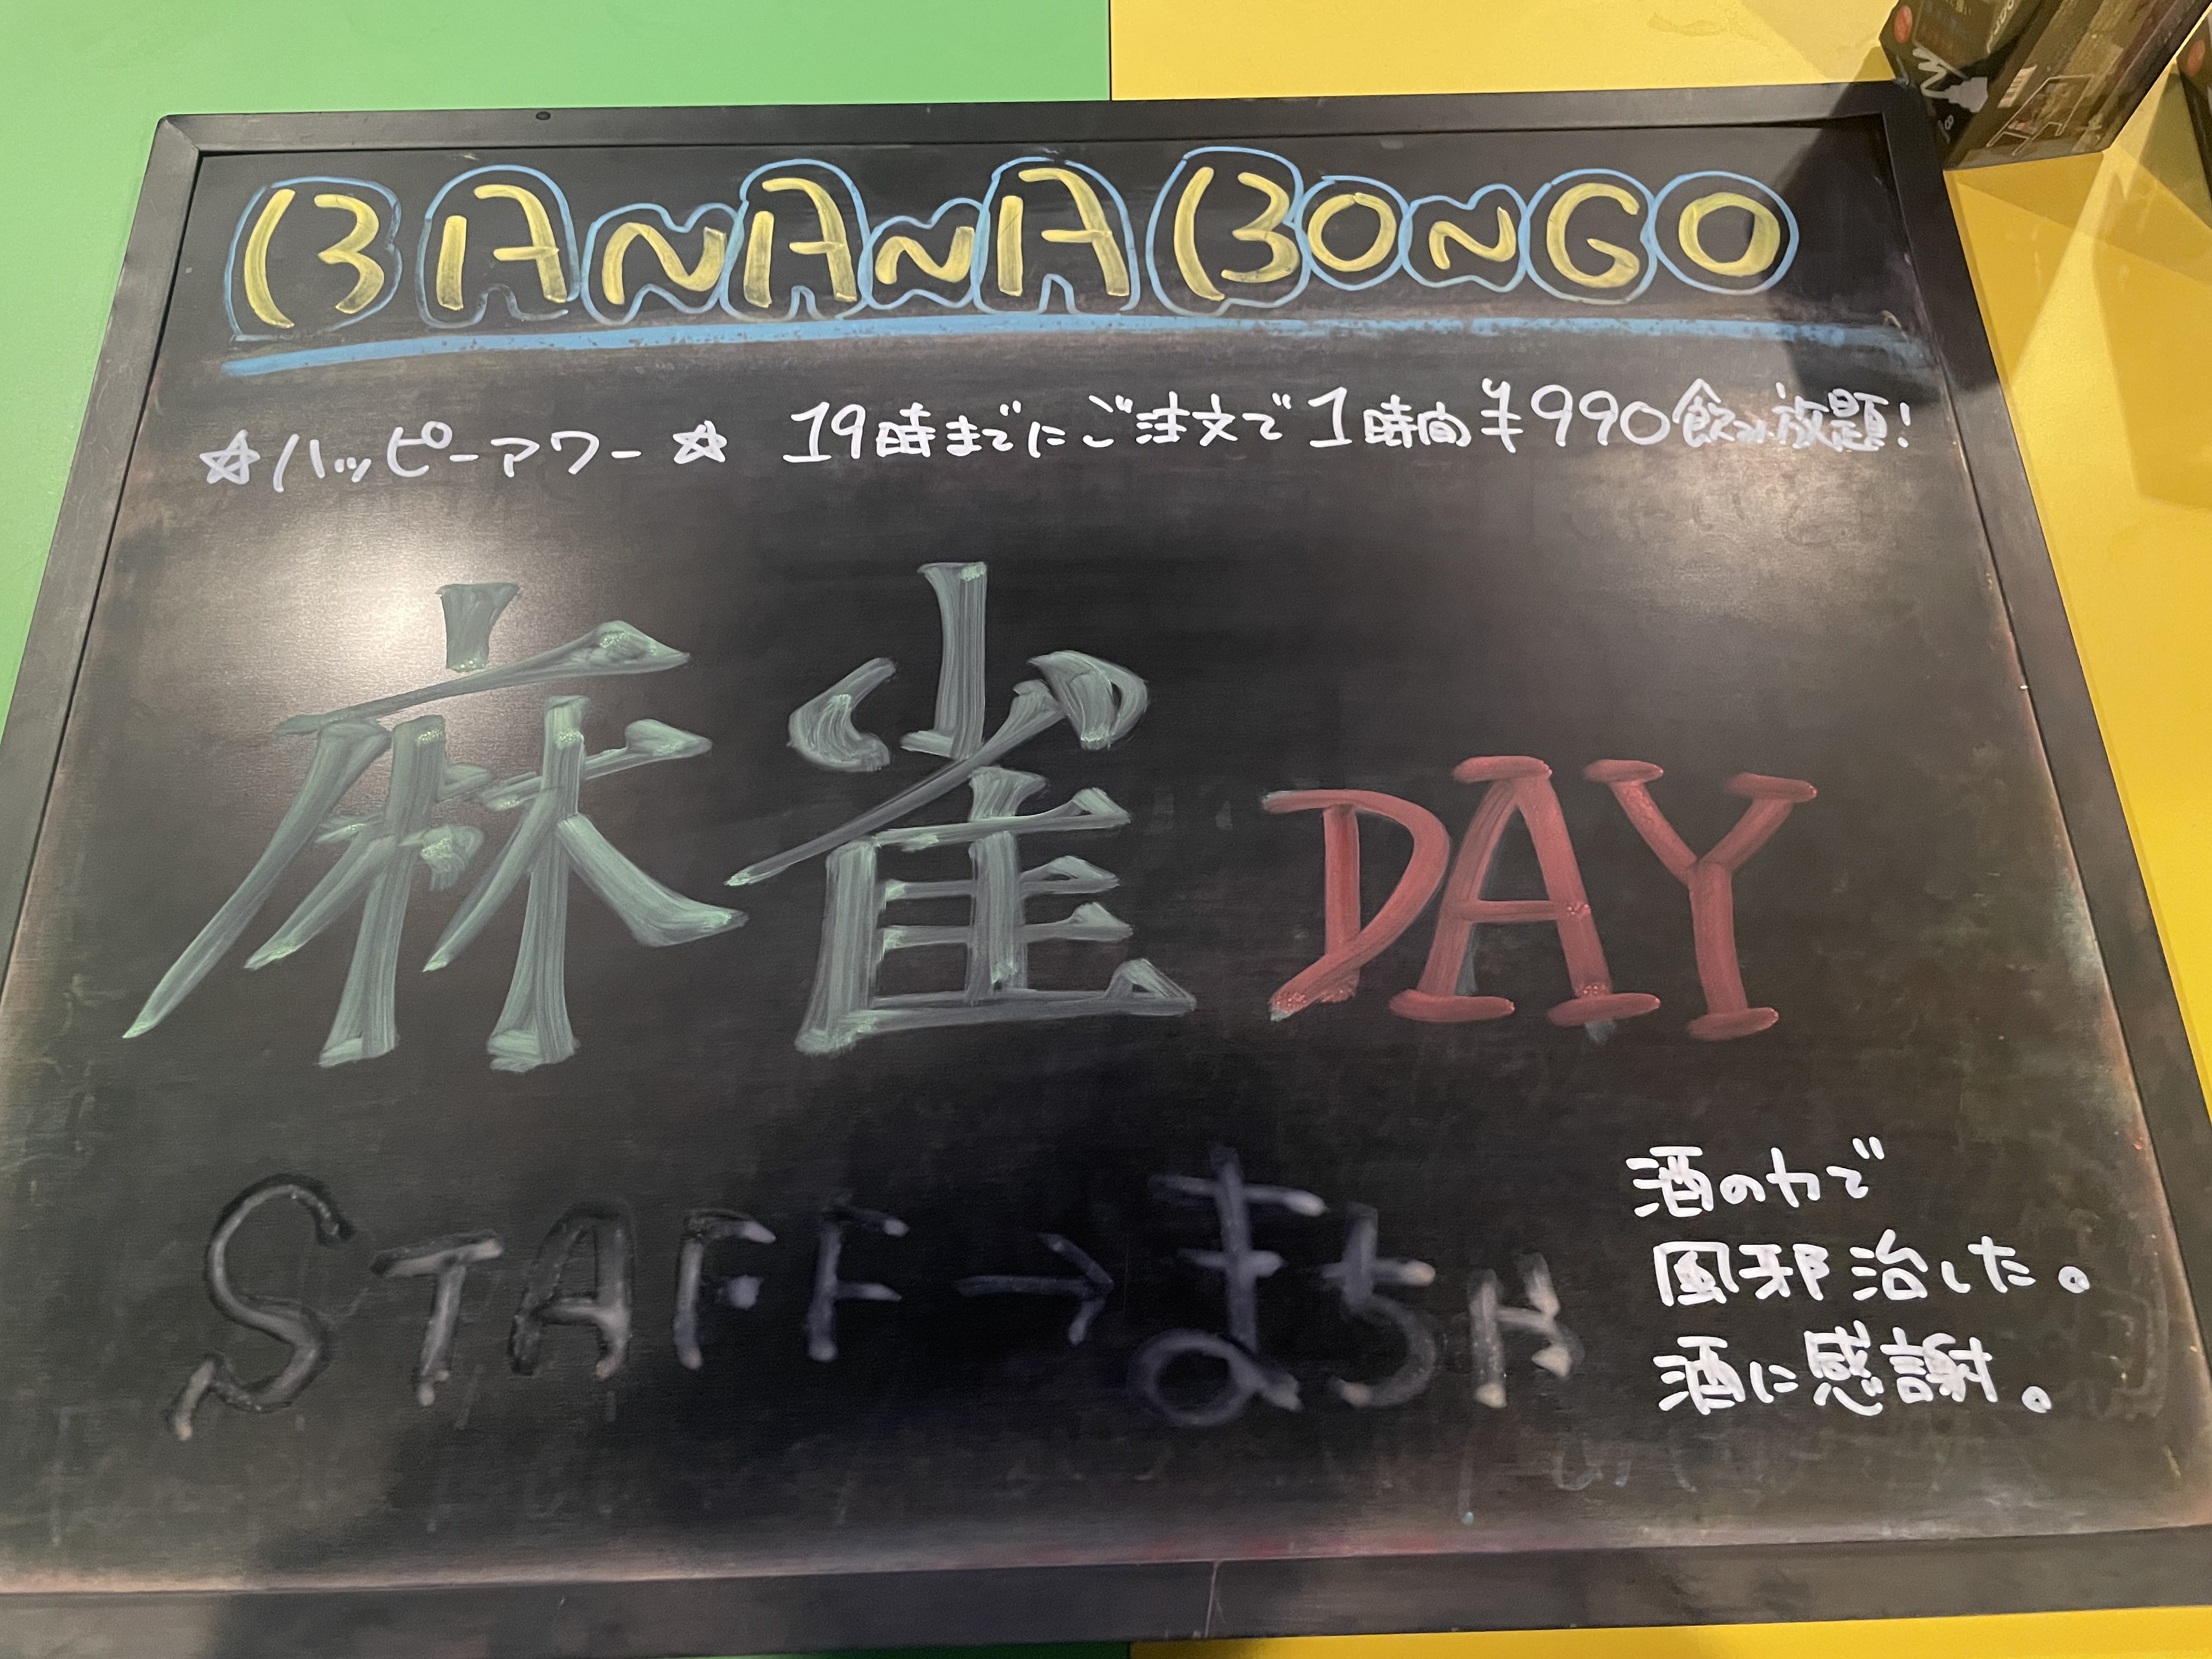 BANANA BONGO
☆ハッピーアワー☆ 19時までにご注文で1時間¥990飲み放題!
麻雀 DAY
STAFF→まち
酒の力で
風邪治した。
酒に感謝。